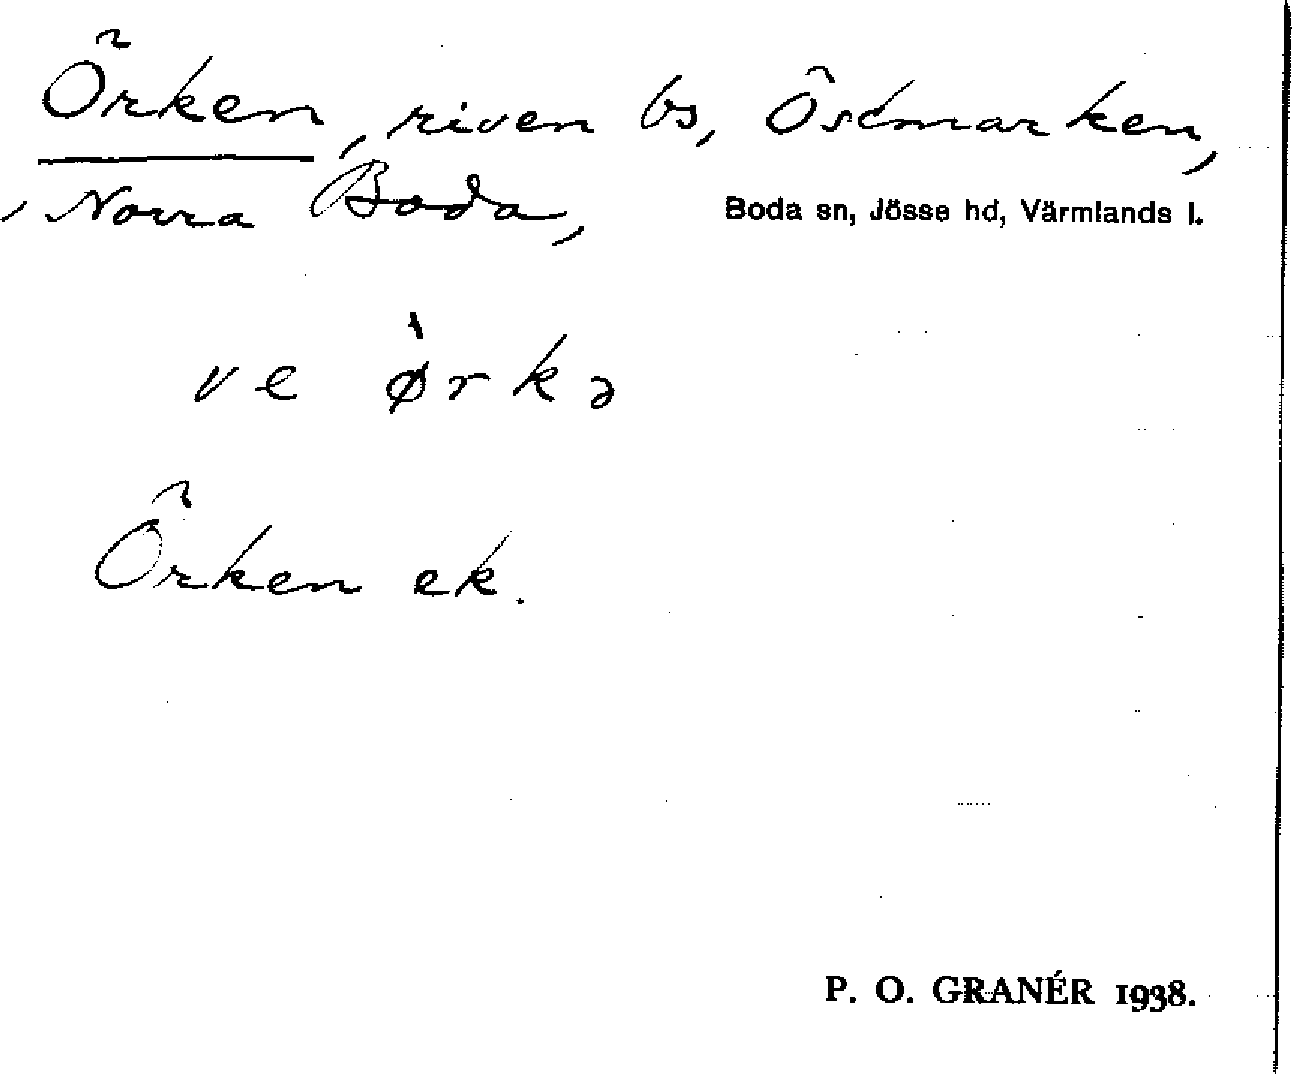 Örken, riven bs, Östmarken,
, Norra Boda, Boda sn, Jösse hd, Värmlands l.
ve ørkə
Örken ek.
P. O. GRANÉR 1938.